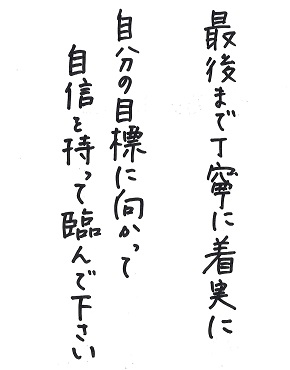 最後まで丁寧に着実に
自分の目標に向かって
自信を持って臨んで下さい